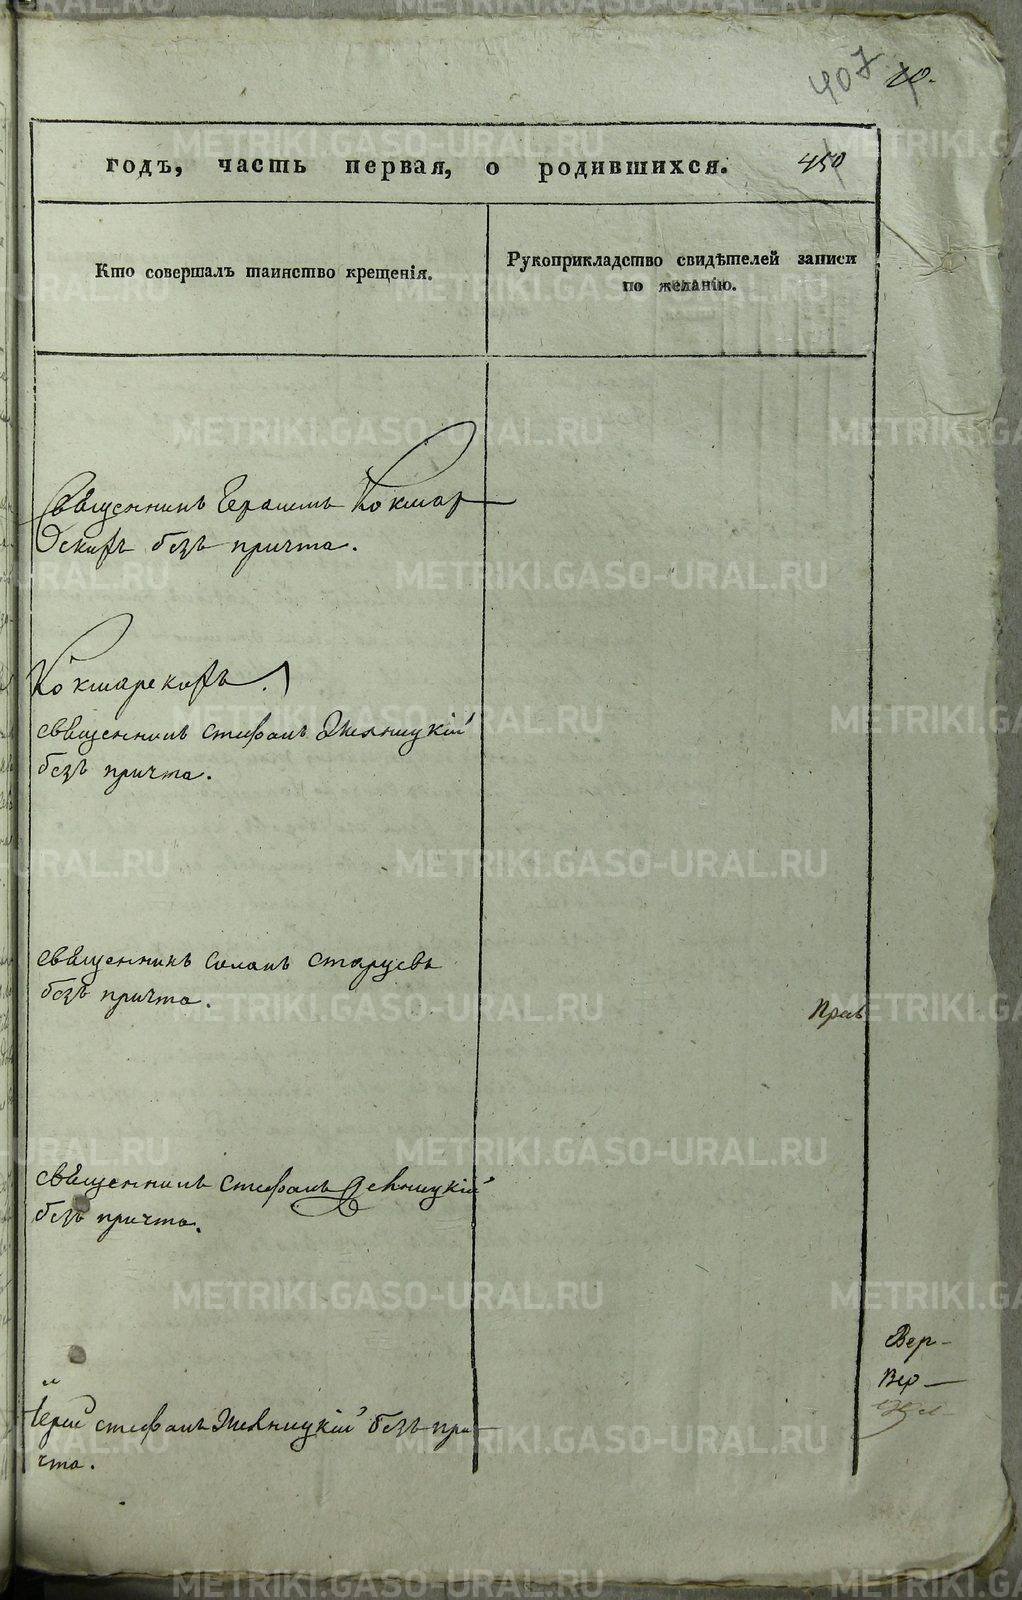 407
10.
годъ, часть первая, о родившихся. 450
Кто совершалъ таинство крещенія.
Рукоприкладство свидѣтелей записи
по желанію.
Священникъ Герасимъ Кокшар
скифъ безъ причта.
Кокшарскифъ.
священникъ стефанъ
безъ причта.
священникъ Iоаннъ старцевъ
безъ причта.
Прав
священникъ стефанъ
безъ причта.
Іерей стефанъ безъ при
чта.
Вер-
Вер-
METRIKI.GASO-URAL.RU